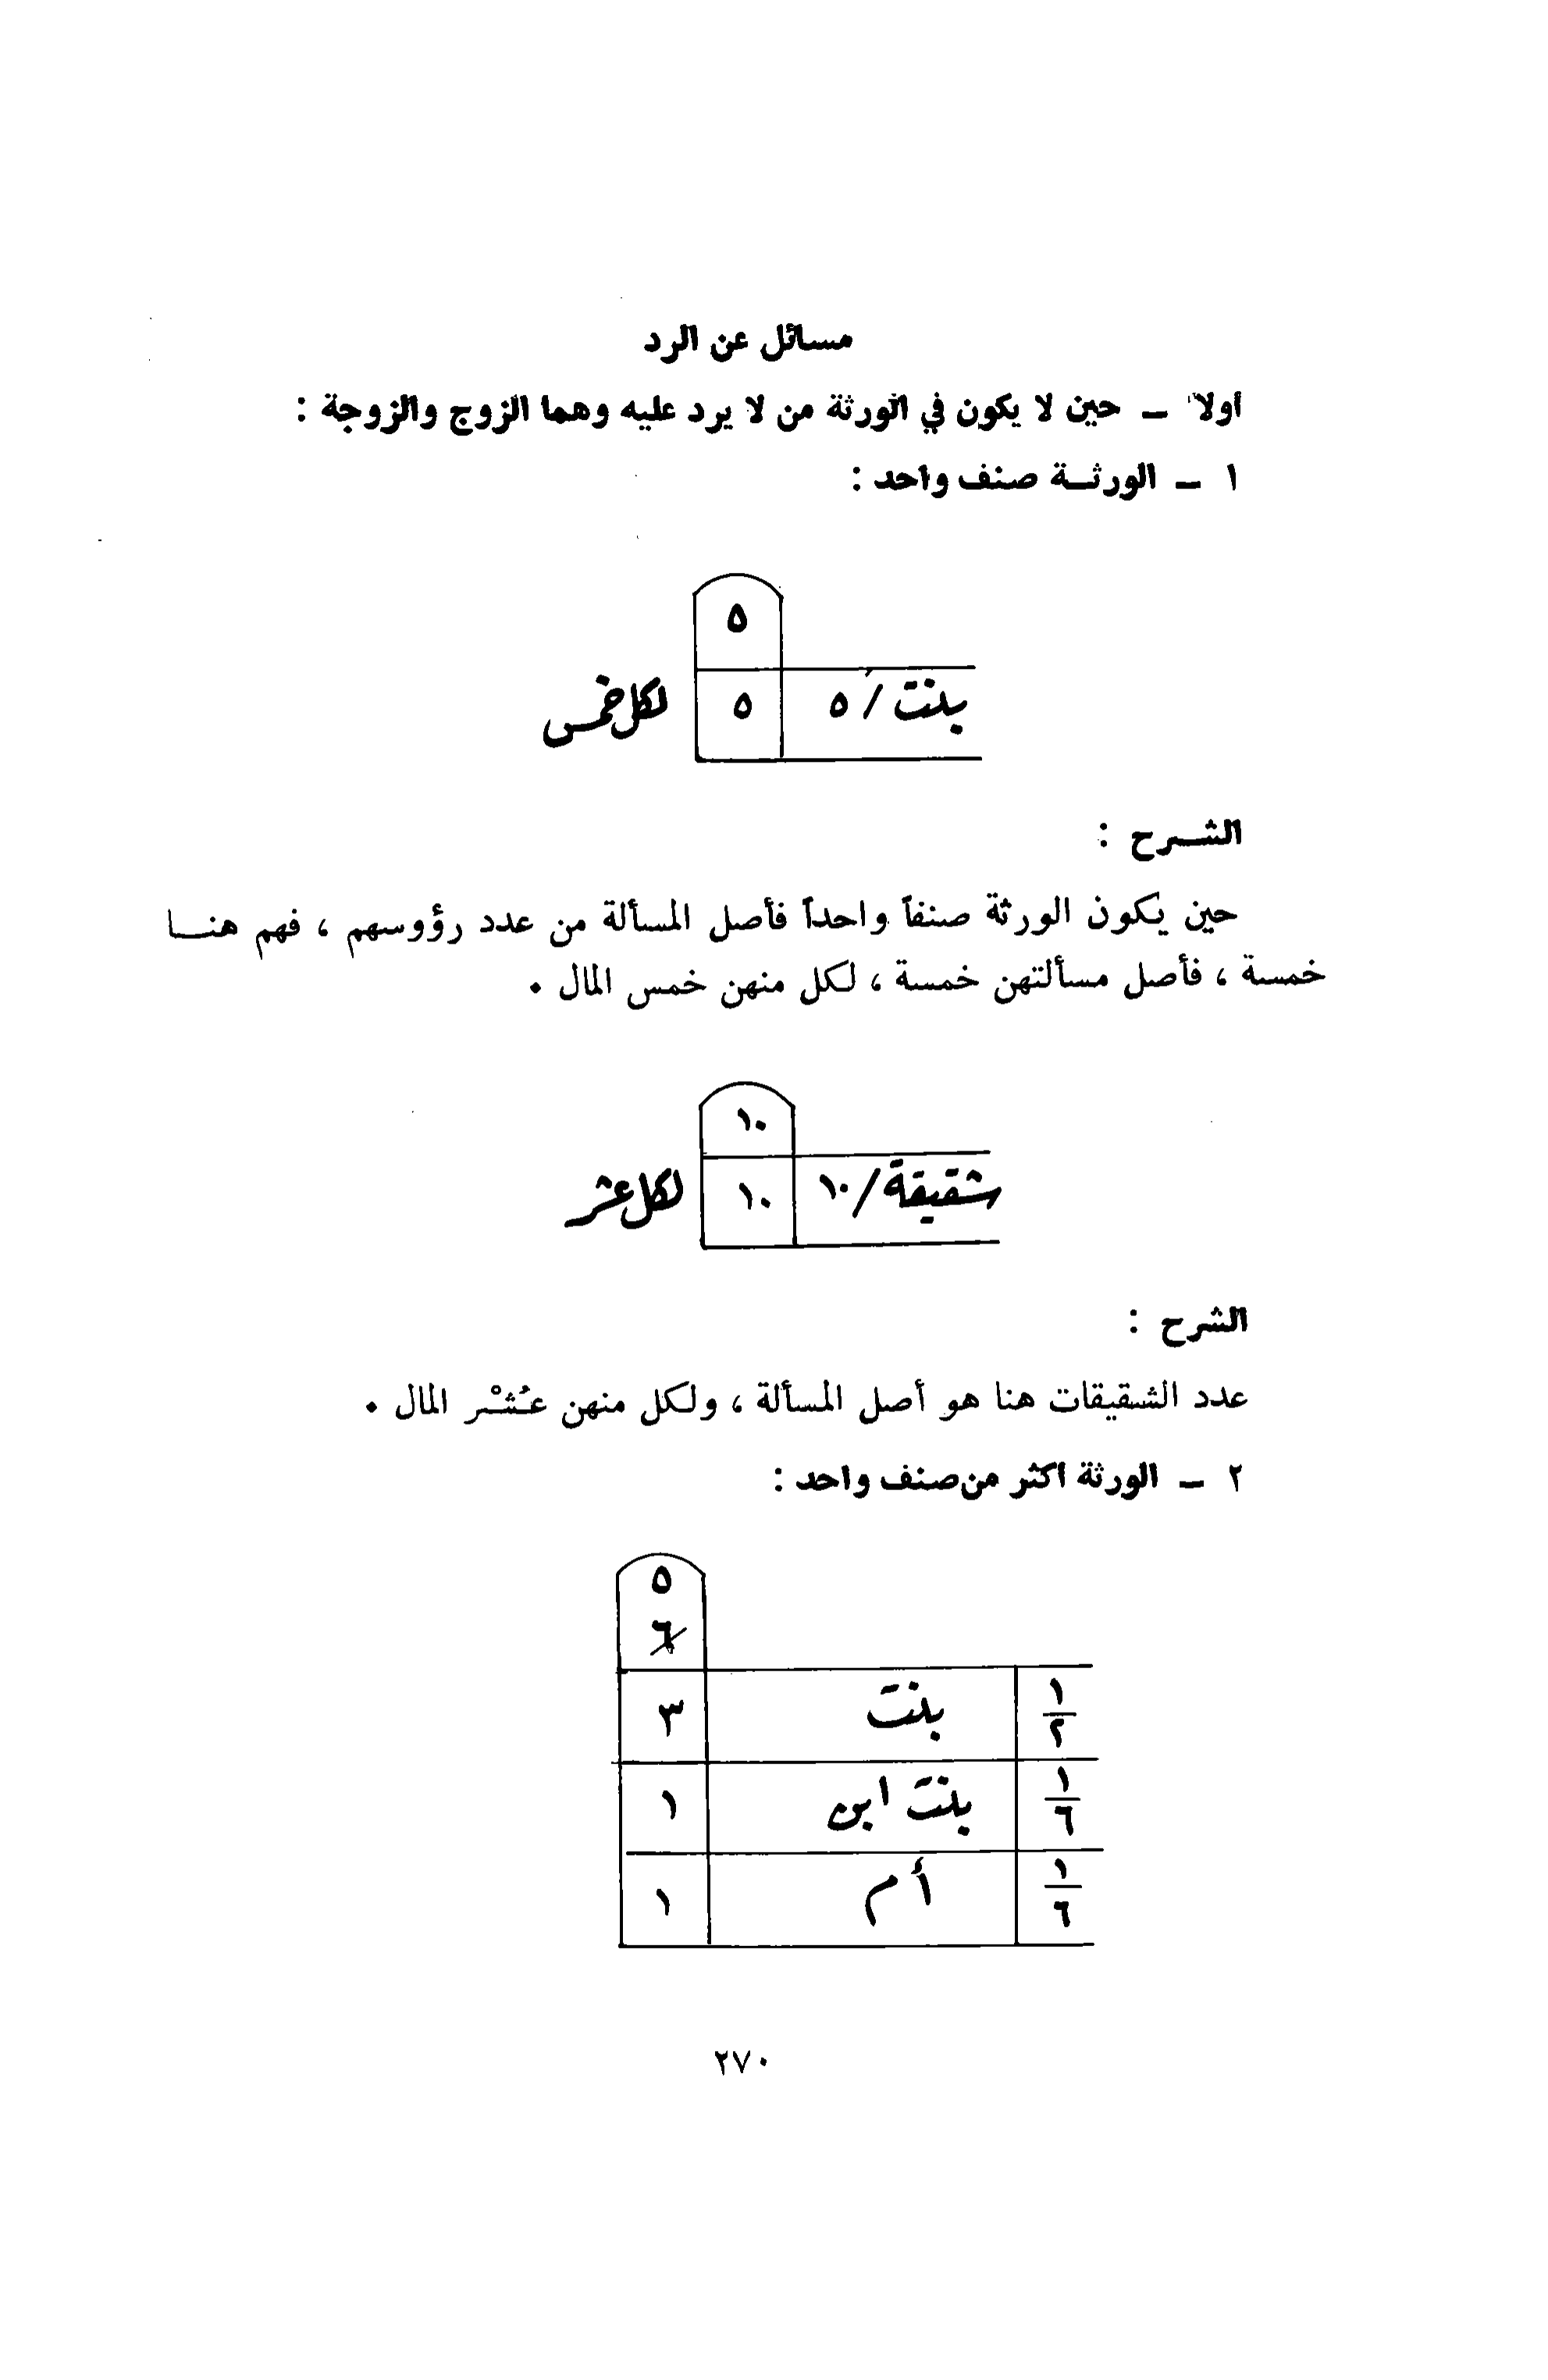 مسائل عن الرد
اولا – حين لا يكون في الورثة من لا يرد عليه وهما الزوج والزوجة :
١ – الورثـــة صنف واحد :
٥
بنت / ٥ ٥ لكل خمس
الشـــرح :
حين يكون الورثة صنفاً واحداً فأصل المسألة من عدد رؤوسهم ، فهم هنـــا
خمسة ، فأصل مسألتهن خمسة ، لكل منهن خمس المال .
١٠
شقيقة / ١٠ ١٠ لكل عشر
الشرح :
عدد الشقيقات هنا هو أصل المسألة ، ولكل منهن عُشْر المال .
٢ – الورثة اكثر من صنف واحد :
٥
٦
١/٢ بنت ٣
١/٦ بنت ابن ١
١/٦ أم ١
٢٧٠